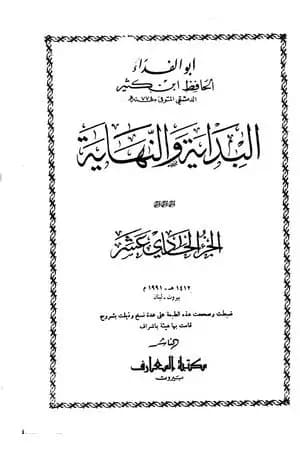 ابو الفداء
الحافظ ابن كثير
الدمشقي المتوفى ٧٧٤ هـ
البداية والنهاية
الجزء الحادي عشر
١٤١٢ هـ - ١٩٩١ م
بيروت - لبنان
ضبطت وصححت هذه الطبعة على عدة نسخ وذيلت بشروح
قامت بها هيئة باشراف
الناشر
مكتبة المعارف
بيروت